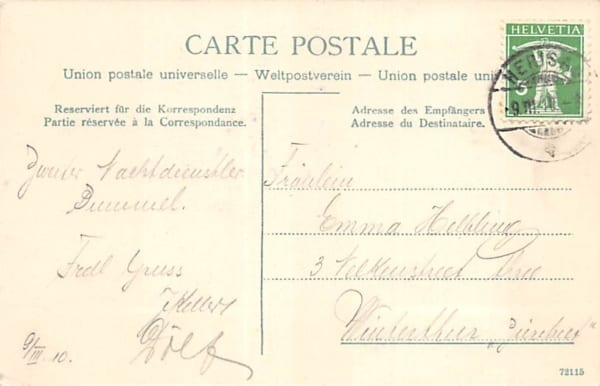 CARTE POSTALE
Union postale universelle — Weltpostverein — Union postale uni
Reserviert für die Korrespondenz
Partie réservée à la Correspondance.
Adresse des Empfängers
Adresse du Destinataire.
HELVETIA
5
HERISAU
9.III.10
Zweiter Nachtdienstler
Bummel.
Frdl Gruss
Dölf
9/III 10.
Fräulein
Emma Helbling
3 Nelkenstreet
Winterthur
72115